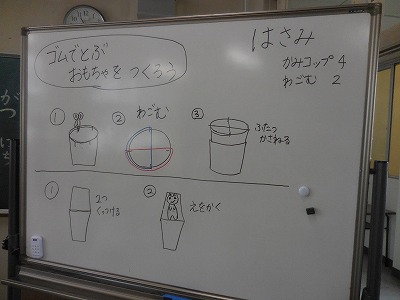 ゴムでとぶ
おもちゃをつくろう
はさみ
かみコップ 4
わごむ 2
①
② わごむ
③
ふたつ
かさねる
①
2つ
くっつける
②
えをかく